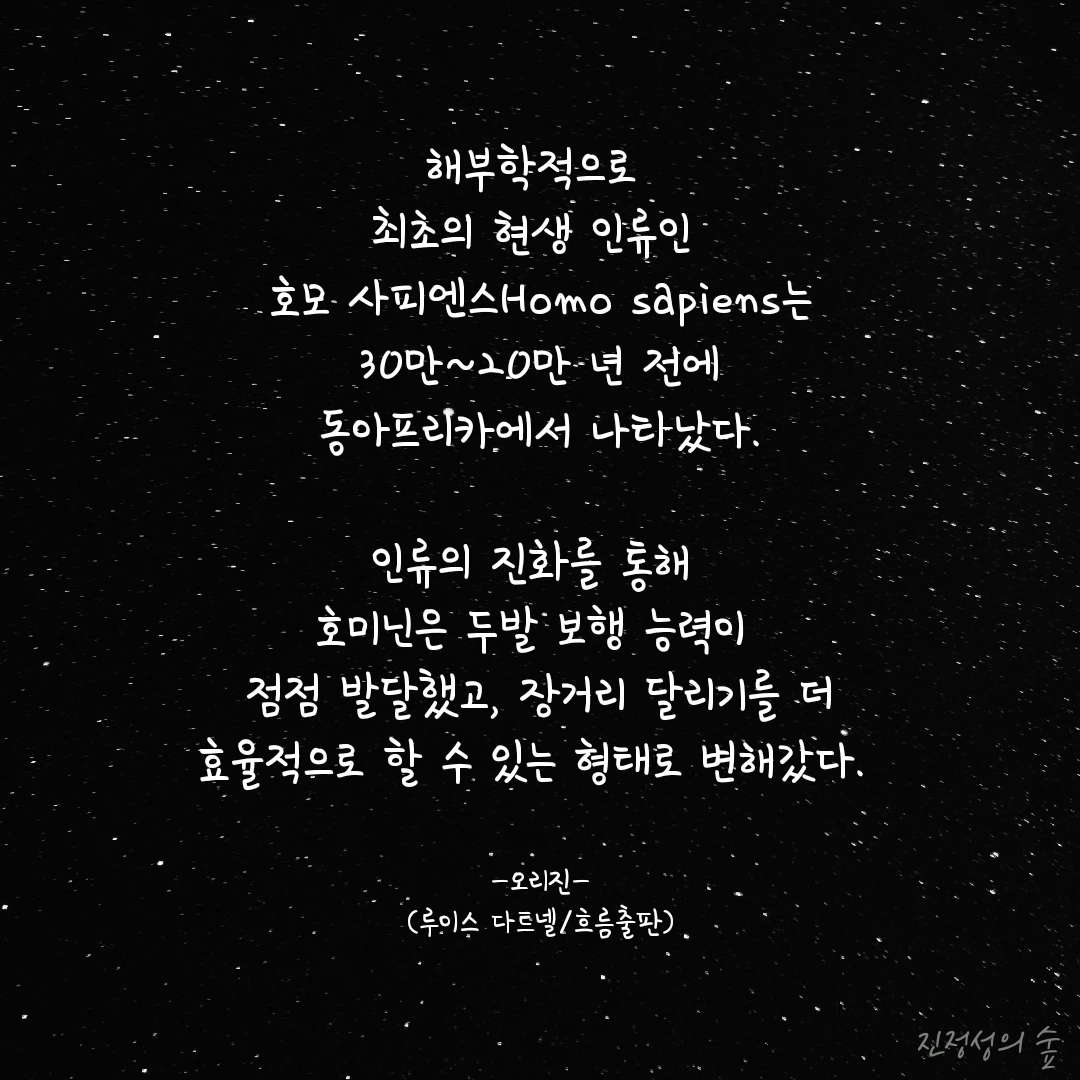 해부학적으로
최초의 현생 인류인
호모 사피엔스Homo sapiens는
30만~20만 년 전에
동아프리카에서 나타났다.
인류의 진화를 통해
호미닌은 두발 보행 능력이
점점 발달했고, 장거리 달리기를 더
효율적으로 할 수 있는 형태로 변해갔다.
-오리진-
(루이스 다트넬/흐름출판)
진정성의 숲